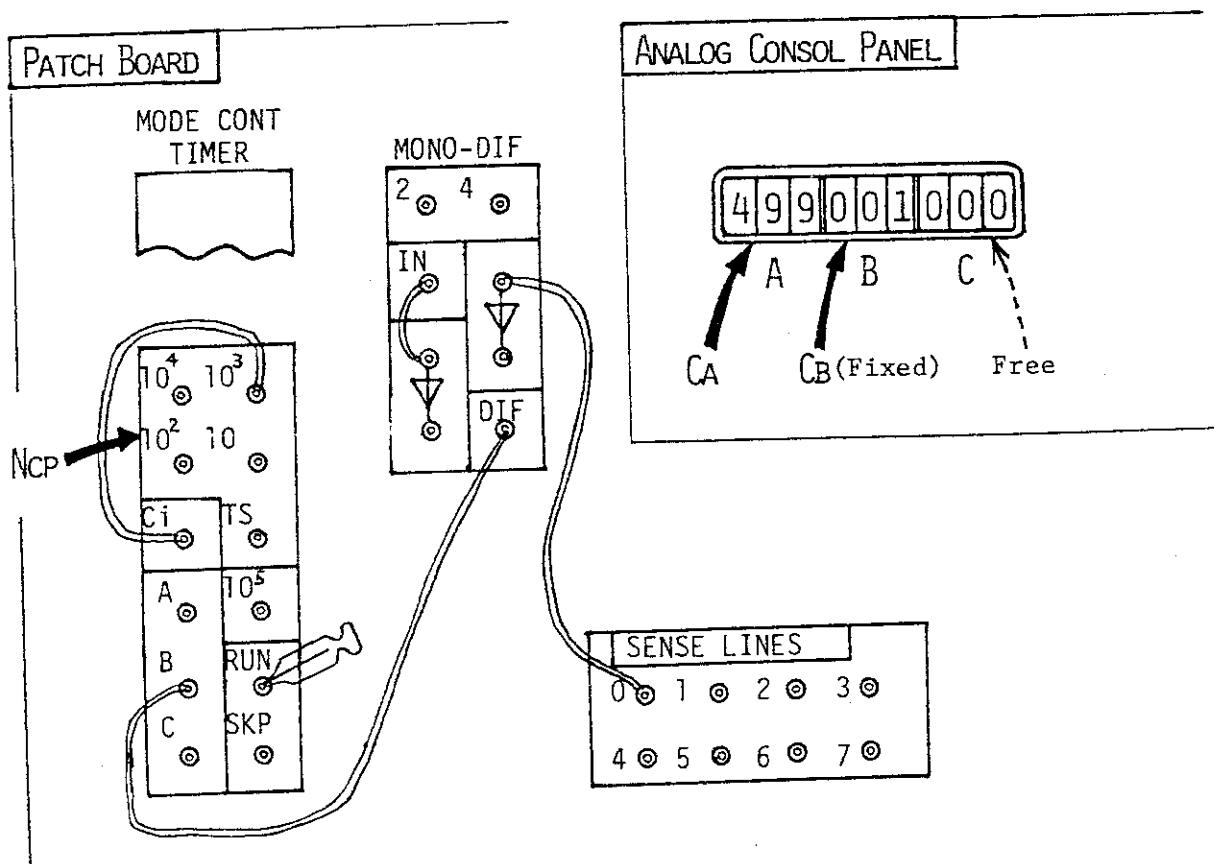 PATCH BOARD
MODE CONT
TIMER
MONO-DIF
2 4
IN
DIF
10⁴ 10³
10² 10
NCP
Ci TS
A 10⁵
B RUN
C SKP
ANALOG CONSOL PANEL
4 9 9 0 0 1 0 0 0
A B C
CA CB(Fixed) Free
SENSE LINES
0 1 2 3
4 5 6 7